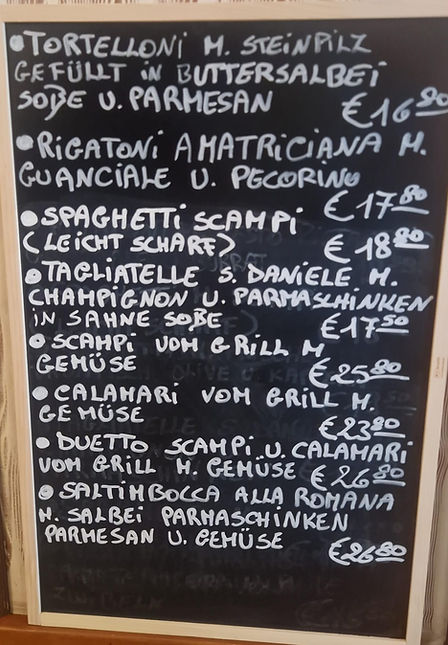 • TORTELLONI M. STEINPILZ
GEFÜLLT in BUTTERSALBEI
SOßE U. PARMESAN €16 80
• RIGATONI AMATRICIANA M.
GUANCIALE U. PECORINO
€17 80
• SPAGHETTI SCAMPI
(LEICHT SCHARF) €18 80
• TAGLIATELLE S. DANIELE M.
CHAMPIGNON U. PARMASCHINKEN
in SAHNE SOßE €17 50
• SCAMPI VOM GRILL M
GEMÜSE €25 80
• CALAMARI VOM GRILL M.
GEMÜSE €23 80
• DUETTO SCAMPI U. CALAMARI
VOM GRILL M. GEMÜSE €26 80
• SALTIMBOCCA ALLA ROMANA
M. SALBEI PARMASCHINKEN
PARMESAN U. GEMÜSE
€26 80